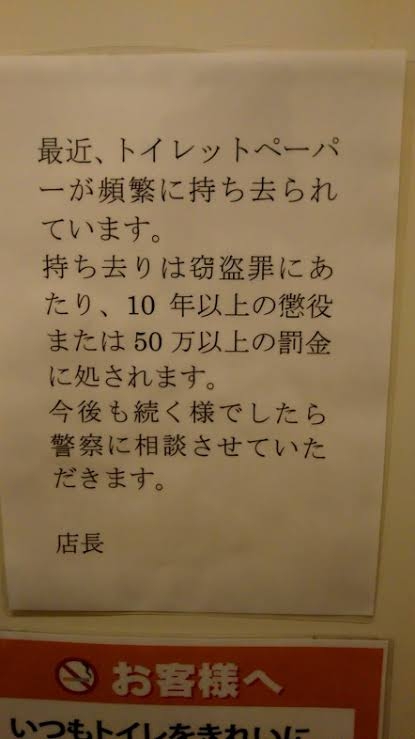 最近、トイレットペーパ
ーが頻繁に持ち去られ
ています。
持ち去りは窃盗罪にあ
たり、10 年以上の懲役
または 50 万以上の罰金
に処されます。
今後も続く様でしたら
警察に相談させていた
だきます。
店長
お客様へ
いつもトイレをきれいに